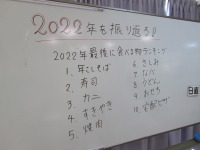 2022年を振り返る!
2022年最後に食べる物ランキング
1. 年こしそば
2. 寿司
3. カニ
4. すきやき
5. 焼肉
6. さしみ
7. なべ
8. うどん
9. おせち
10. 宅配ピザ
日直